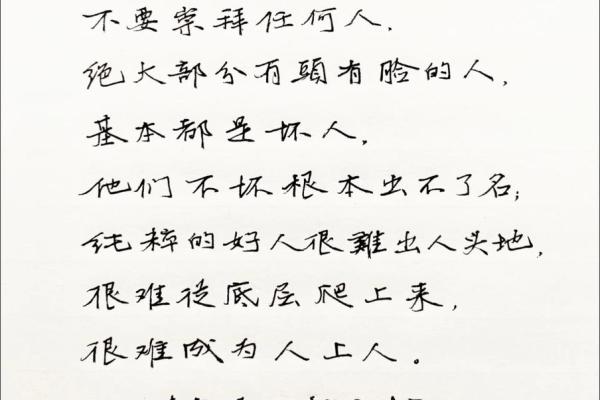 不要崇拜任何人,
绝大部分有頭有脸的人,
基本都是坏人,
他们不坏根本出不了名;
纯粹的好人很難出人头地,
很难从底层爬上来,
很难成为人上人。